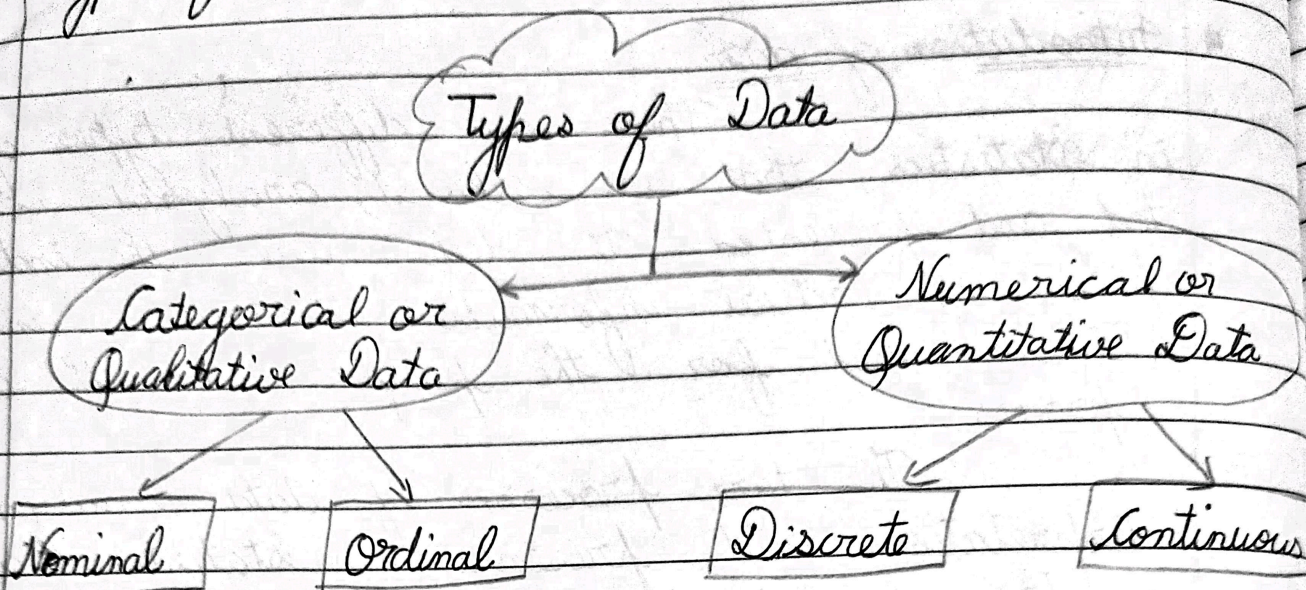 Types of Data
Categorical or
Qualitative Data
Numerical or
Quantitative Data
Nominal
Ordinal
Discrete
Continuous